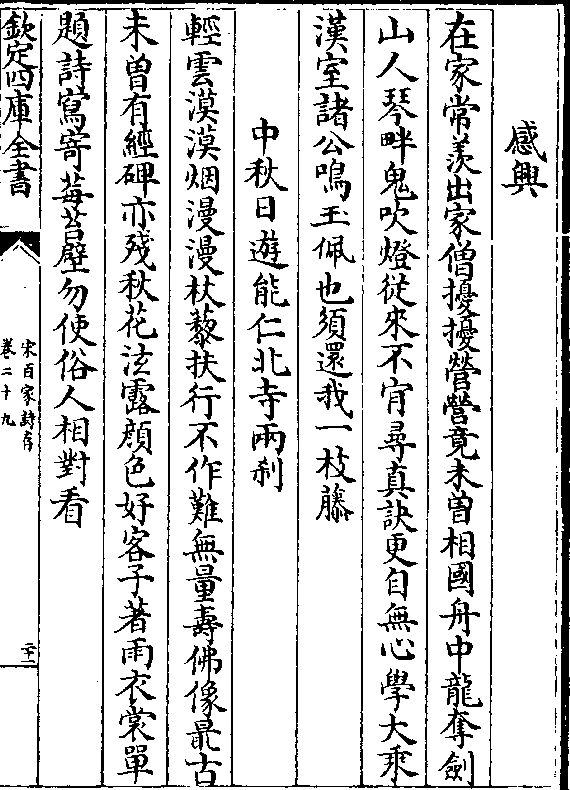 感興
在家常羨出家僧擾擾營營竟未曽相國舟中龍奪劍
山人琴畔鬼吹燈從來不肯尋真訣更自無心學大乘
漢室諸公鳴玉佩也須還我一枝藤
中秋日遊能仁北寺兩刹
輕雲漠漠烟漫漫杖藜扶行不作難無量壽佛像最古
未曽有經碑亦殘秋花泫露顔色好客子著雨衣裳單
題詩寫寄莓苔壁勿使俗人相對看
欽定四庫全書
宋百家詩存
卷二十九